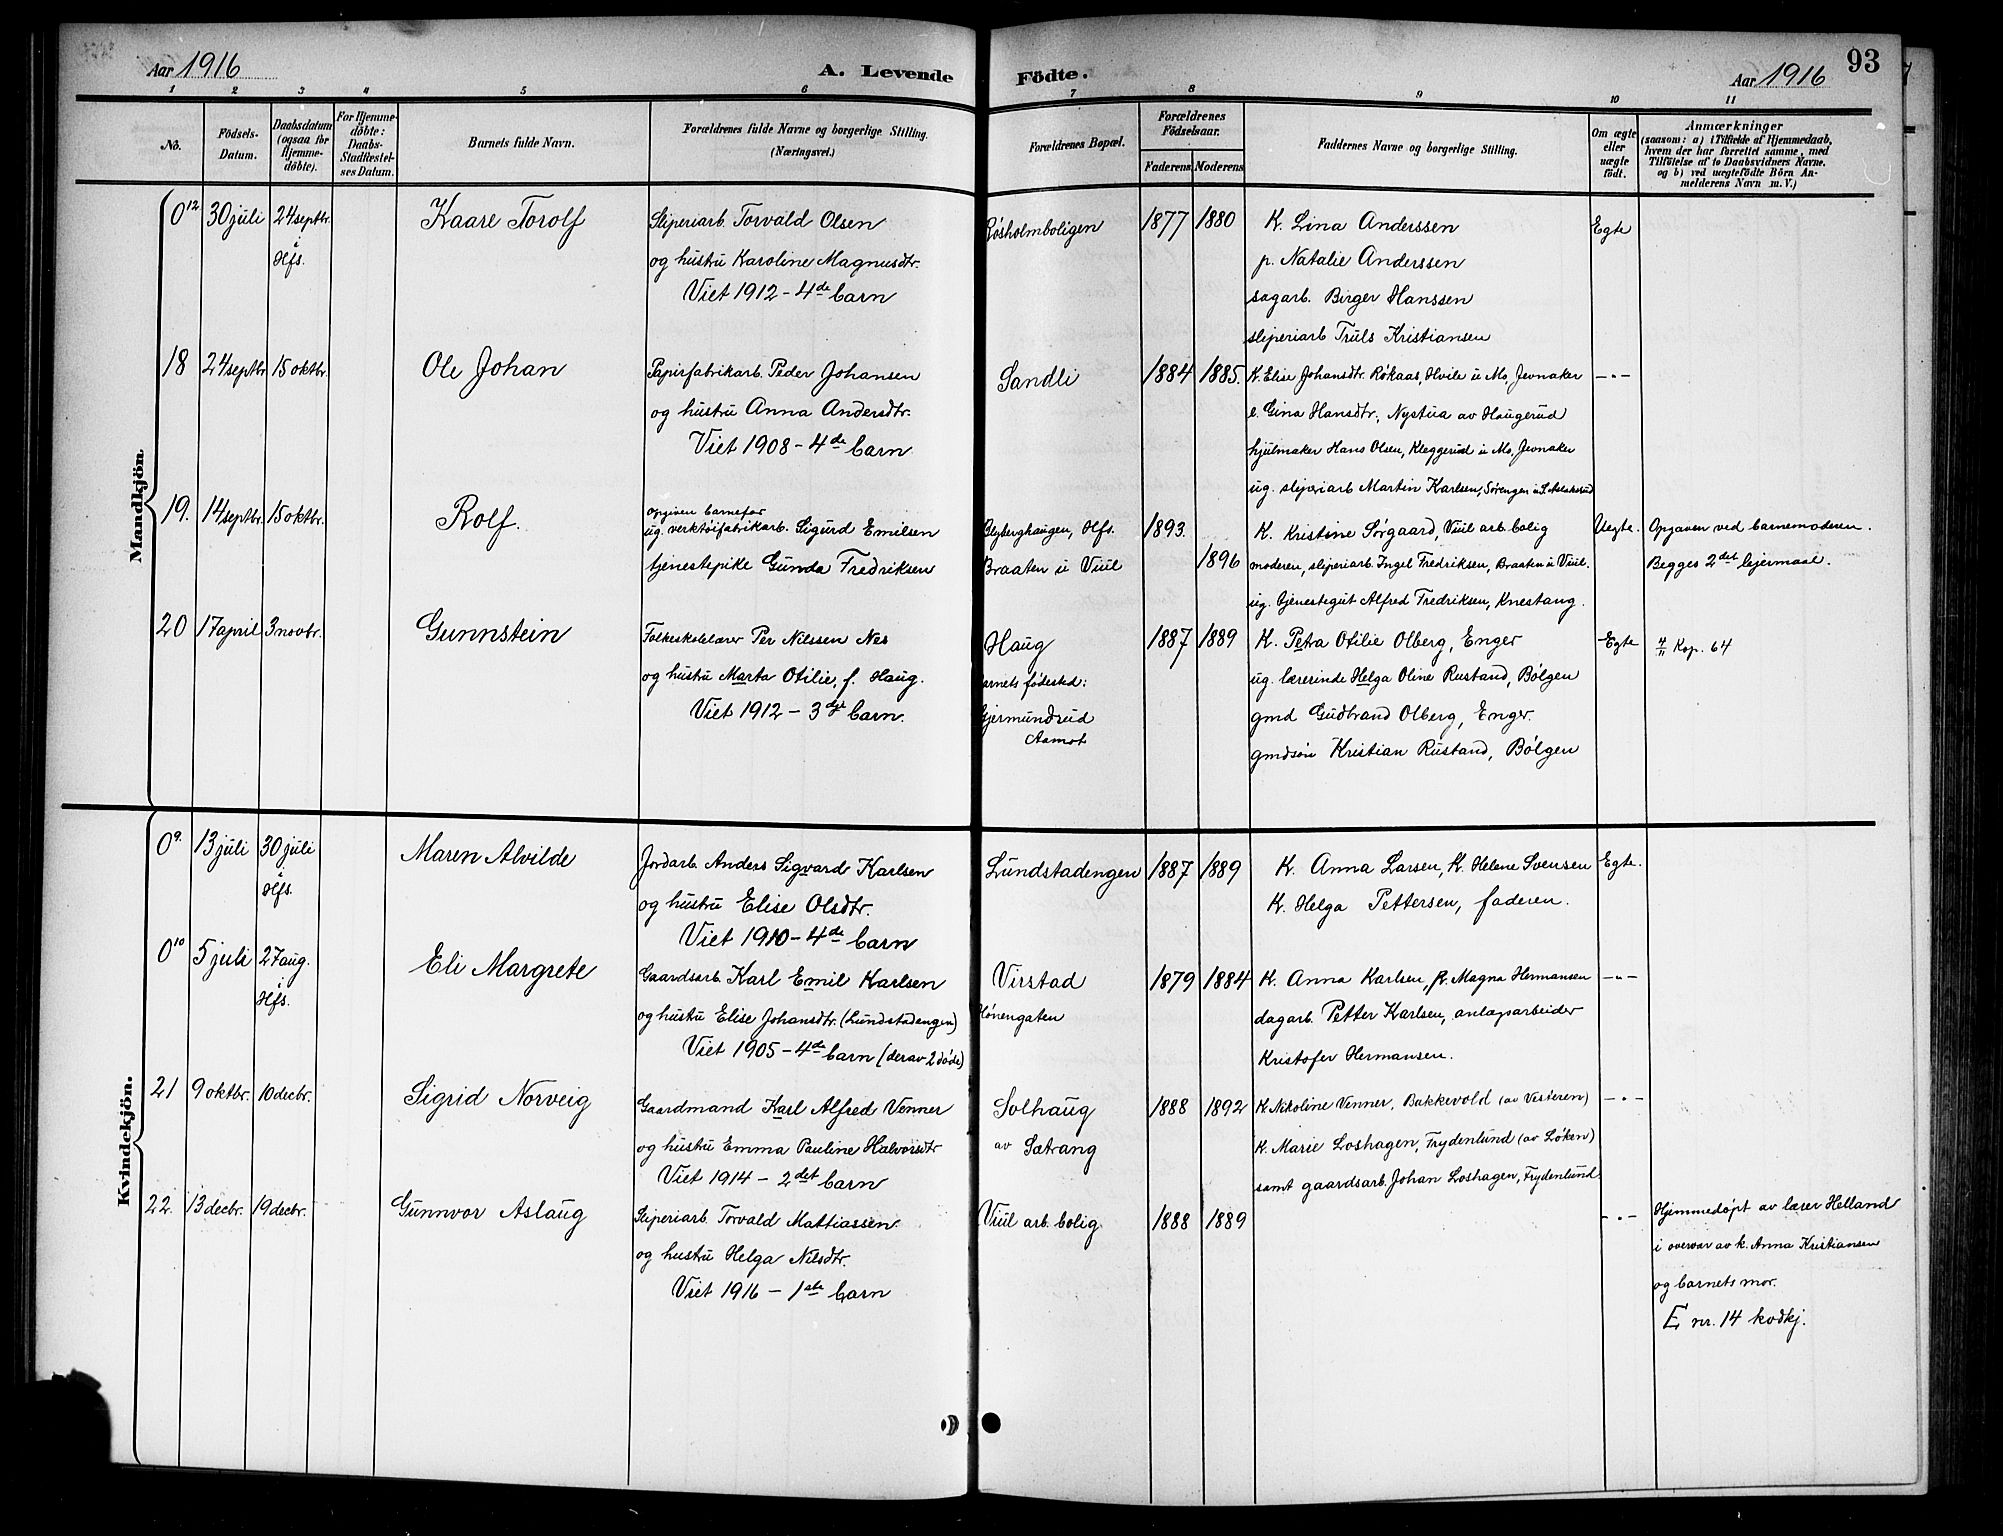 Aar 1916
A. Levende
Födte.
Aar 1916
93
1 2 3 4 5 6 7 8 9 10 11
No.
Födsels-
Datum.
Daabsdatum
(ogsaa for
Hjemme-
döbte).
For Hjemme-
döbte:
Daabs-
Stadfæstel-
ses Datum.
Barnets fulde Navn.
Forældrenes fulde Navne og borgerlige Stilling.
(Næringsvei.)
Forældrenes Bopæl.
Forældrenes
Födselsaar.
Faderens. Moderens.
Faddernes Navne og borgerlige Stilling.
Om ægte
eller
uægte
födt.
Anmærkninger
(saasom: a) i Tilfælde af Hjemmedaab,
hvem der har forrettet samme, med
Tilföielse af to Daabsvidners Navne,
og b) ved uægtefödte Börn An-
melderens Navn m. V.)
Mandkjön
0 12 30 juli 24 septbr. i Hfs.
Kaare Torolf
Sliperiarb. Torvald Olsen
og hustru Karoline Magnusdtr.
Viet 1912 - 4de barn
Røsholmboligen
1877 1880
K. Lina Anderssen
p. Natalie Anderssen
sagarb. Birger Hanssen
sliperiarb Truls Kristiansen
Egte
18 24 septbr 15 oktbr.
Ole Johan
Papirfabrikarb. Peder Johansen
og hustru Anna Andersdtr.
Viet 1908 - 4de barn
Sandli
1884 1885.
K. Elise Johansdtr. Røkaas, Hvile u Mo, Jevnaker
e. Gina Hansdtr., Nystua av Haugerud
hjulmaker Hans Olsen, Kleggerud u Mo, Jevnaker
ug. sliperiarb Martin Karlsen, Sørengen u L. Aslaksrud
- " -
19. 14 septbr. 15 oktbr.
Rolf.
opgiven barnefar
ug. verktøifabrikarb. Sigurd Emilsen
tjenestepike Gunda Fredriksen
Glyberghaugen, Hfs.
Braaten u Viul
1893.
1896
K. Kristine Sørgaard, Viul arb. bolig
moderen, sliperiarb. Ingel Fredriksen, Braaten u Viul.
ug. tjenestegut Alfred Fredriksen, Knestang.
Uegte.
Opgaven ved barnemoderen.
Begges 2det leiermaal.
20 17 april 3 novbr.
Gunnstein
Folkeskolelærer Per Nilssen Nes
og hustru Marta Otilie, f. Haug.
Viet 1912 - 3dje barn.
Haug
arnets fødested:
Gjermundrud
Aamot
1887 1889
K. Petra Otilie Olberg, Enger
ug. lærerinde Helga Oline Rustand, Bølgen
gmd Gudbrand Olberg, Enger.
gmdsøn Kristian Rustand, Bølgen
Egte
4/11 Kop. 64
Kvindekjön.
0 9. 13 juli 30 juli i Hfs.
Maren Alvilde
Jordarb. Anders Sigvard Karlsen
og hustru Elise Olsdtr.
Viet 1910 - 4de barn
Lundstadengen
1887 1889
K. Anna Larsen, K. Helene Svensen
K. Helga Pettersen, faderen.
Egte.
0 10 5 juli 27 aug. i Hfs.
Eli Margrete
Gaardsarb. Karl Emil Karlsen
og hustru Elise Johansdtr. (Lundstadengen)
Viet 1905 - 4de barn (derav 2 døde)
Virstad
Hønengaten
1879 1884
K. Anna Karlsen, p. Magna Hermansen
dagarb. Petter Karlsen, anlægsarbeider
Kristofer Hermansen.
- " -
21 9 oktbr. 10 decbr.
Sigrid Norveig
Gaardmand Karl Alfred Venner
og hustru Emma Pauline Halvorsdtr
Viet 1914 - 2det barn
Solhaug
av Sætrang
1888 1892
K. Nikoline Venner, Bakkevold (av Vesteren)
K. Marie Loshagen, Frydenlund (av Løken)
samt gaardsarb. Johan Loshagen, Frydenlund.
- " -
22. 13 decbr. 19 decbr.
Gunnvor Aslaug
Sliperiarb. Torvald Mattiassen
og hustru Helga Nilsdtr.
Viet 1916 - 1ste barn
Viul arb. bolig
1888 1889
- " -
Hjemmedøpt av lærer Helland
i overvær av k. Anna Kristiansen
og barnets mor.
E nr. 14 kvdkj.